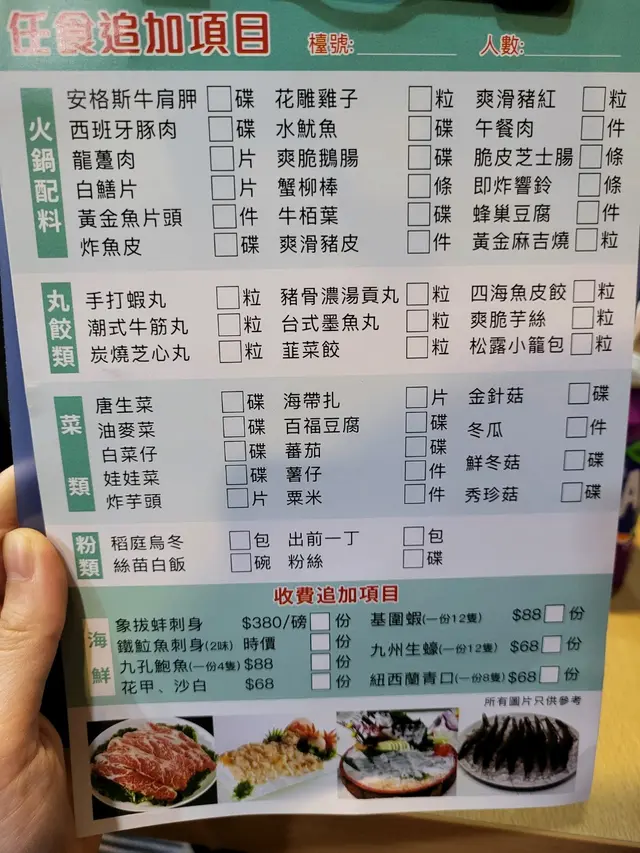 任食追加項目 檯號: 人數:
火鍋配料
安格斯牛肩胛 碟 花雕雞子 粒 爽滑豬紅 粒
西班牙豚肉 碟 水魷魚 碟 午餐肉 件
龍躉肉 片 爽脆鵝腸 碟 脆皮芝士腸 條
白鱔片 片 蟹柳棒 條 即炸響鈴 條
黃金魚片頭 件 牛栢葉 碟 蜂巢豆腐 件
炸魚皮 碟 爽滑豬皮 件 黃金麻吉燒 粒
丸餃類
手打蝦丸 粒 豬骨濃湯貢丸 粒 四海魚皮餃 粒
潮式牛筋丸 粒 台式墨魚丸 粒 爽脆芋絲 粒
炭燒芝心丸 粒 韮菜餃 粒 松露小籠包 粒
菜類
唐生菜 碟 海帶扎 片 金針菇 碟
油麥菜 碟 百福豆腐 碟 冬瓜 件
白菜仔 碟 蕃茄 碟 鮮冬菇 碟
娃娃菜 碟 薯仔 件 秀珍菇 碟
炸芋頭 片 粟米 件
粉類
稻庭烏冬 包 出前一丁 包
絲苗白飯 碗 粉絲 碟
收費追加項目
海鮮
象拔蚌刺身 $380/磅 份 基圍蝦(一份12隻) $88 份
鐵䱽魚刺身(2味) 時價 份 九州生蠔(一份12隻) $68 份
九孔鮑魚(一份4隻) $88 份 紐西蘭青口(一份8隻) $68 份
花甲、沙白 $68 份
所有圖片只供參考